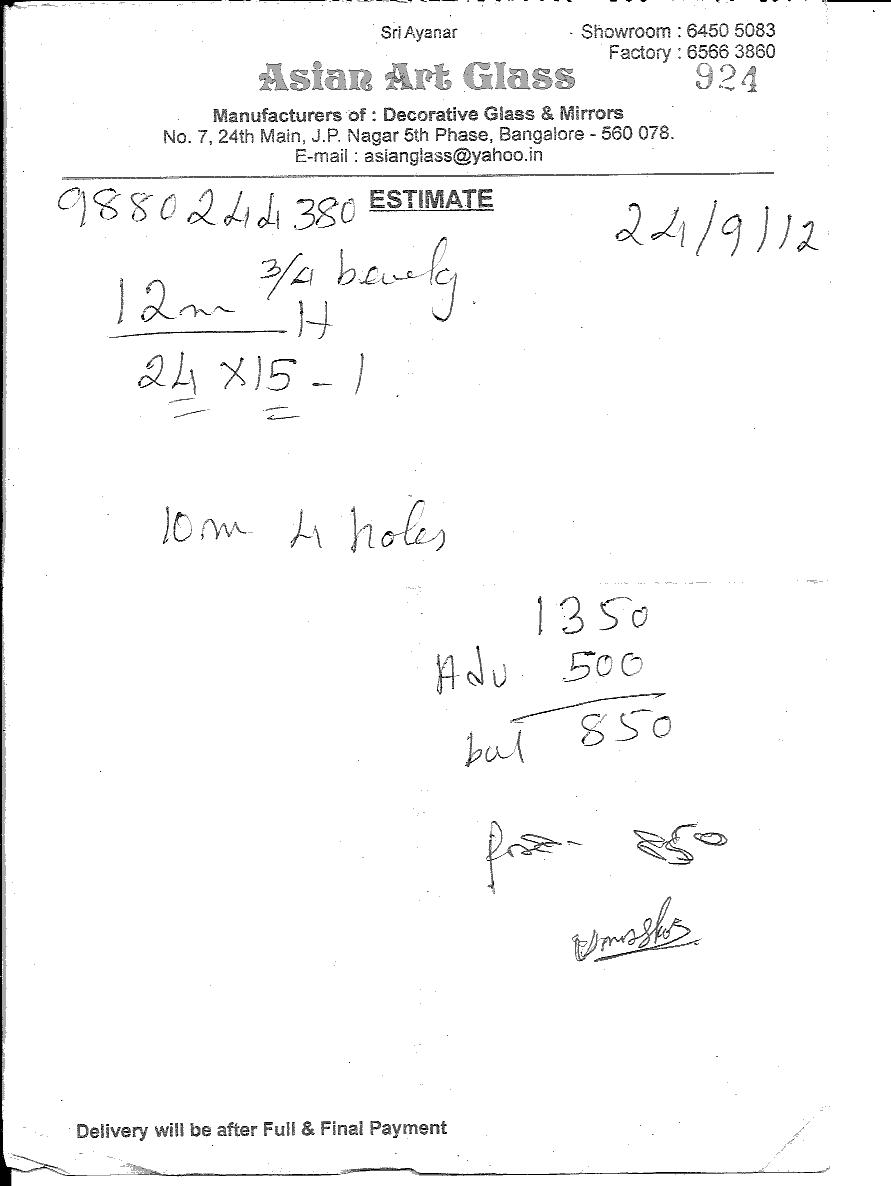 Sri Ayanar
Showroom : 6450 5083
Factory : 6566 3860
Asian Art Glass
924
Manufacturers of : Decorative Glass & Mirrors
No. 7, 24th Main, J.P. Nagar 5th Phase, Bangalore - 560 078.
E-mail : asianglass@yahoo.in
9880244380 ESTIMATE
24/9/12
3/4
12m H
24 X 15 - 1
10m 4 holes
1350
Adv. 500
bal 850
850
Delivery will be after Full & Final Payment